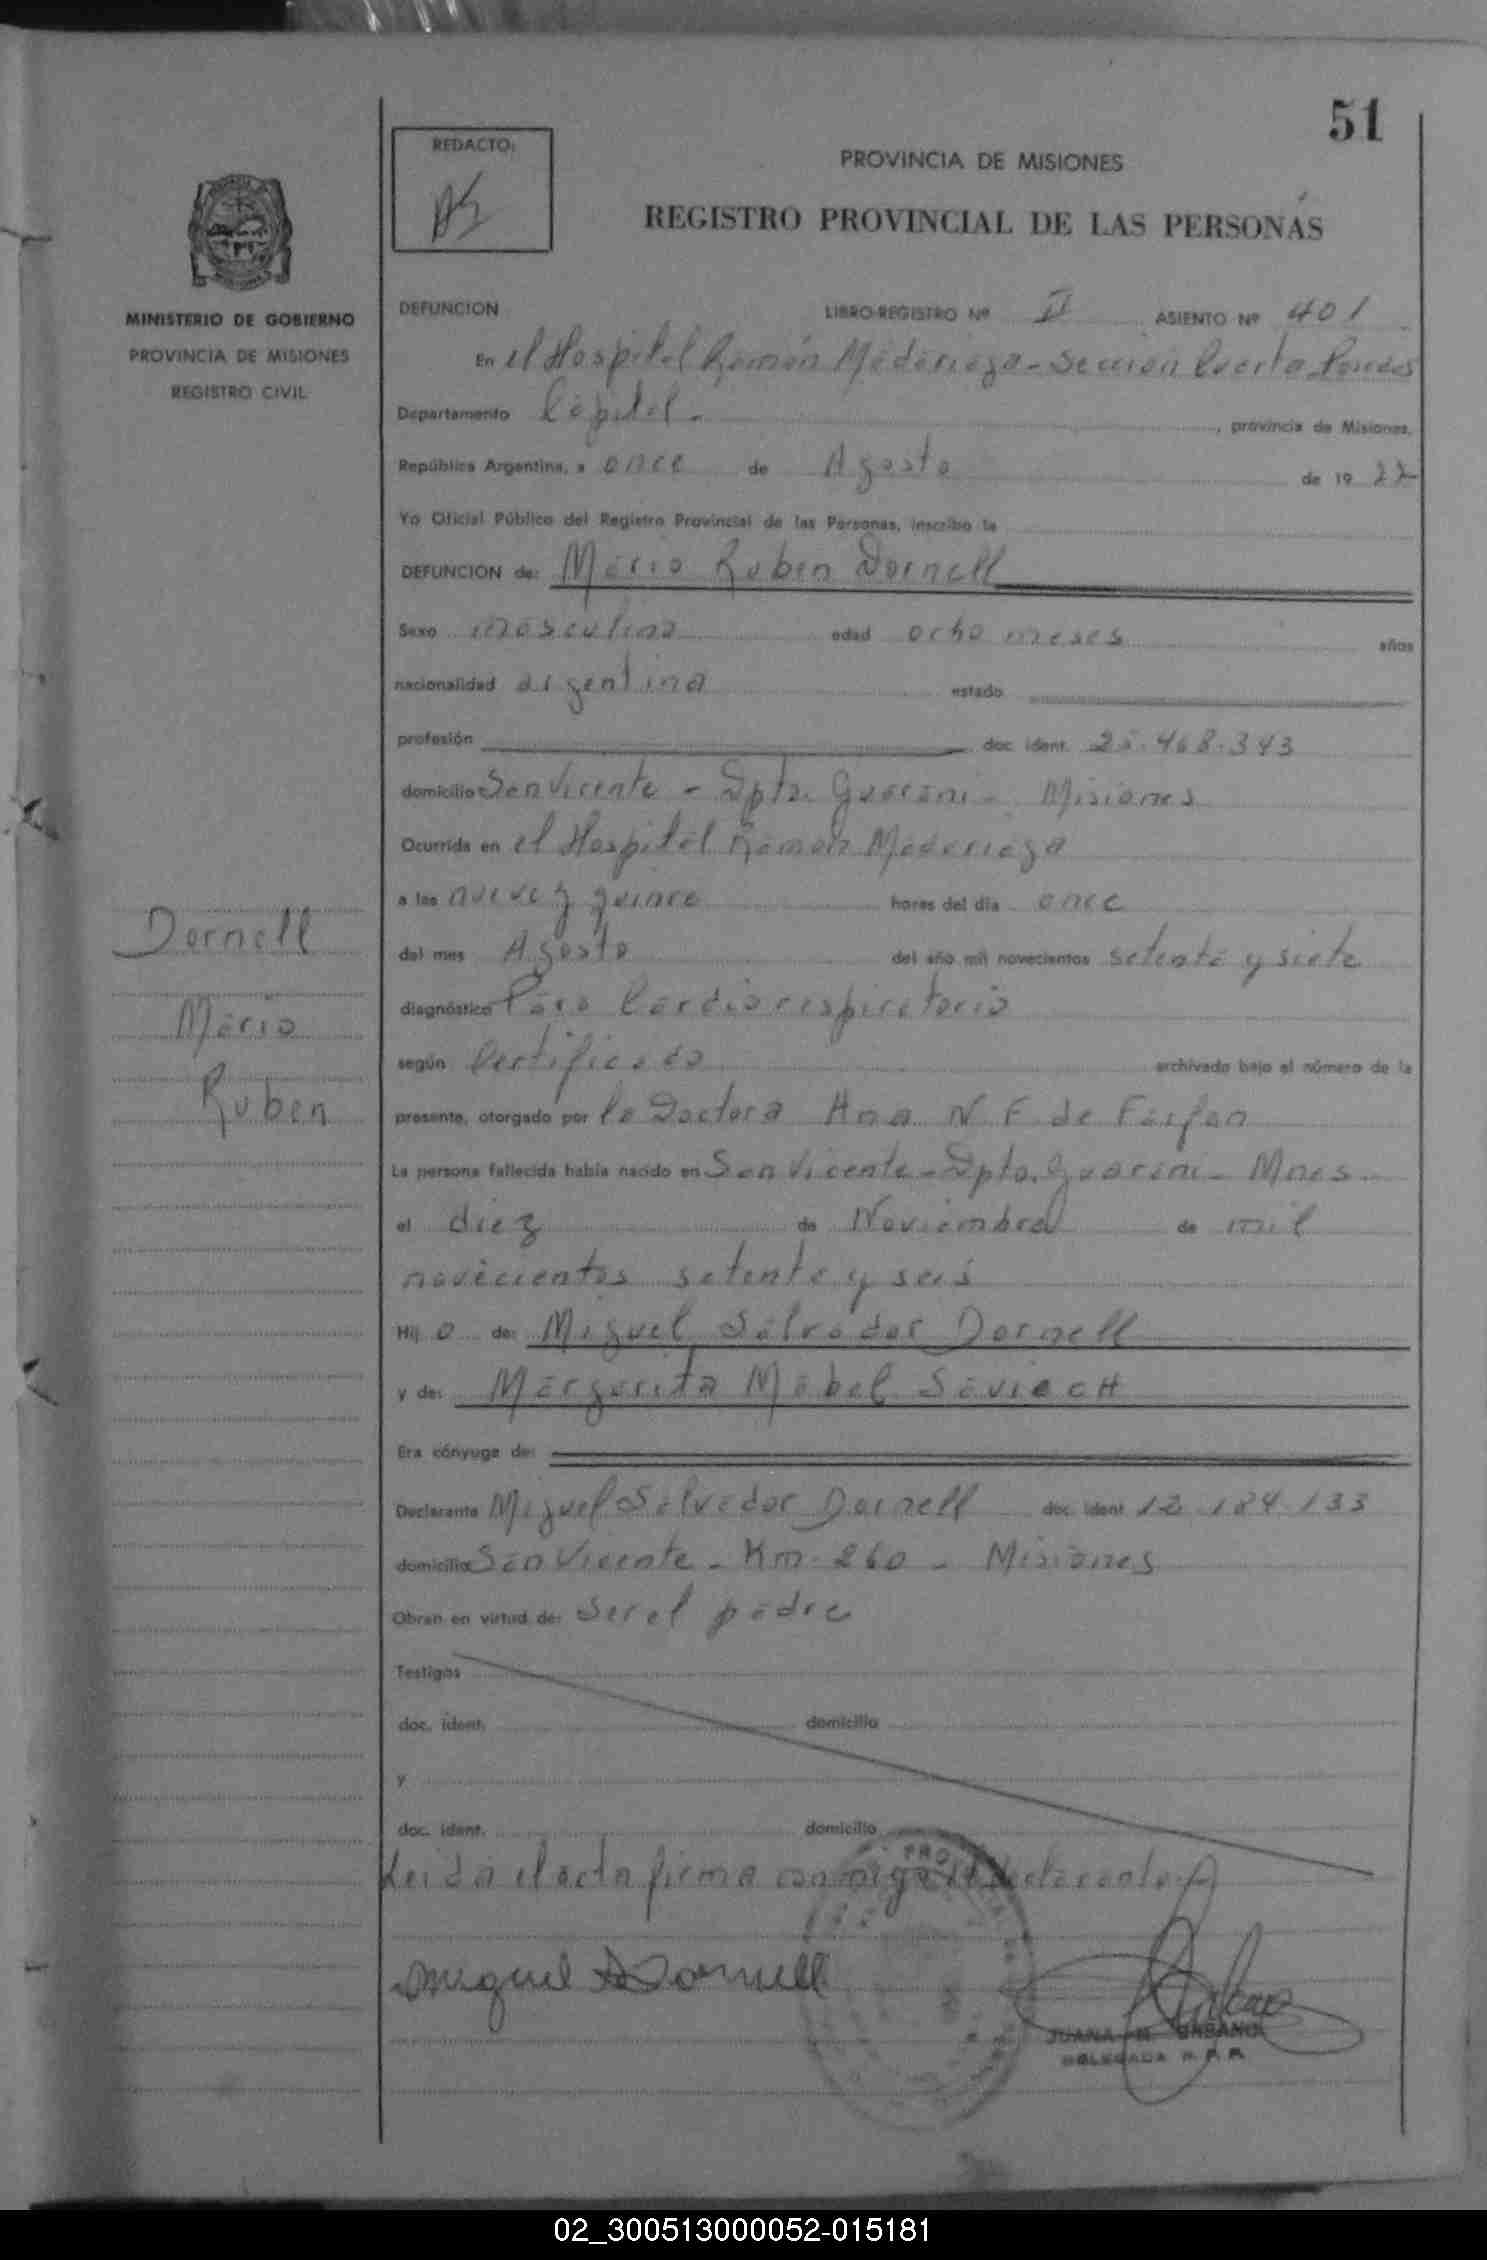 51
REDACTO:
PROVINCIA DE MISIONES
REGISTRO PROVINCIAL DE LAS PERSONAS
MINISTERIO DE GOBIERNO
PROVINCIA DE MISIONES
REGISTRO CIVIL
DEFUNCION LIBRO-REGISTRO Nº II ASIENTO Nº 401
En el Hospital Ramón Madariaga - Sección Cuarta Posadas
Departamento Capital - , provincia de Misiones,
República Argentina, a once de Agosto de 19 77
Yo Oficial Público del Registro Provincial de las Personas, inscribo la
DEFUNCION de: Mario Ruben Dornell
Sexo masculino edad ocho meses años
nacionalidad argentina estado
profesión doc. ident. 25.468.343
domicilio San Vicente - Dpto. Guaraní - Misiones
Ocurrida en el Hospital Ramón Madariaga
a las nueve y quince horas del día once
del mes Agosto del año mil novecientos setenta y siete
diagnóstico Paro Cardiorespiratorio
según Certificado archivado bajo el número de la
presente, otorgado por la Doctora Ana N. F. de Farfan
La persona fallecida había nacido en San Vicente - Dpto. Guaraní - Mnes
el diez de Noviembre de mil
novecientos setenta y seis
Hij o de: Miguel Salvador Dornell
y de: Margarita Mabel SaviacH
Era cónyuge de:
Declarante Miguel Salvador Dornell doc. ident 12.184.133
domicilio San Vicente - Km. 260 - Misiones
Obran en virtud de: ser el padre
Testigos
doc. ident. domicilio
y
doc. ident. domicilio
Leida el acta firma conmigo el declarante
Miguel S Dornell
JUANA URBANO
DELEGADA R. P. P.
Dornell
Mario
Ruben
02_300513000052-015181